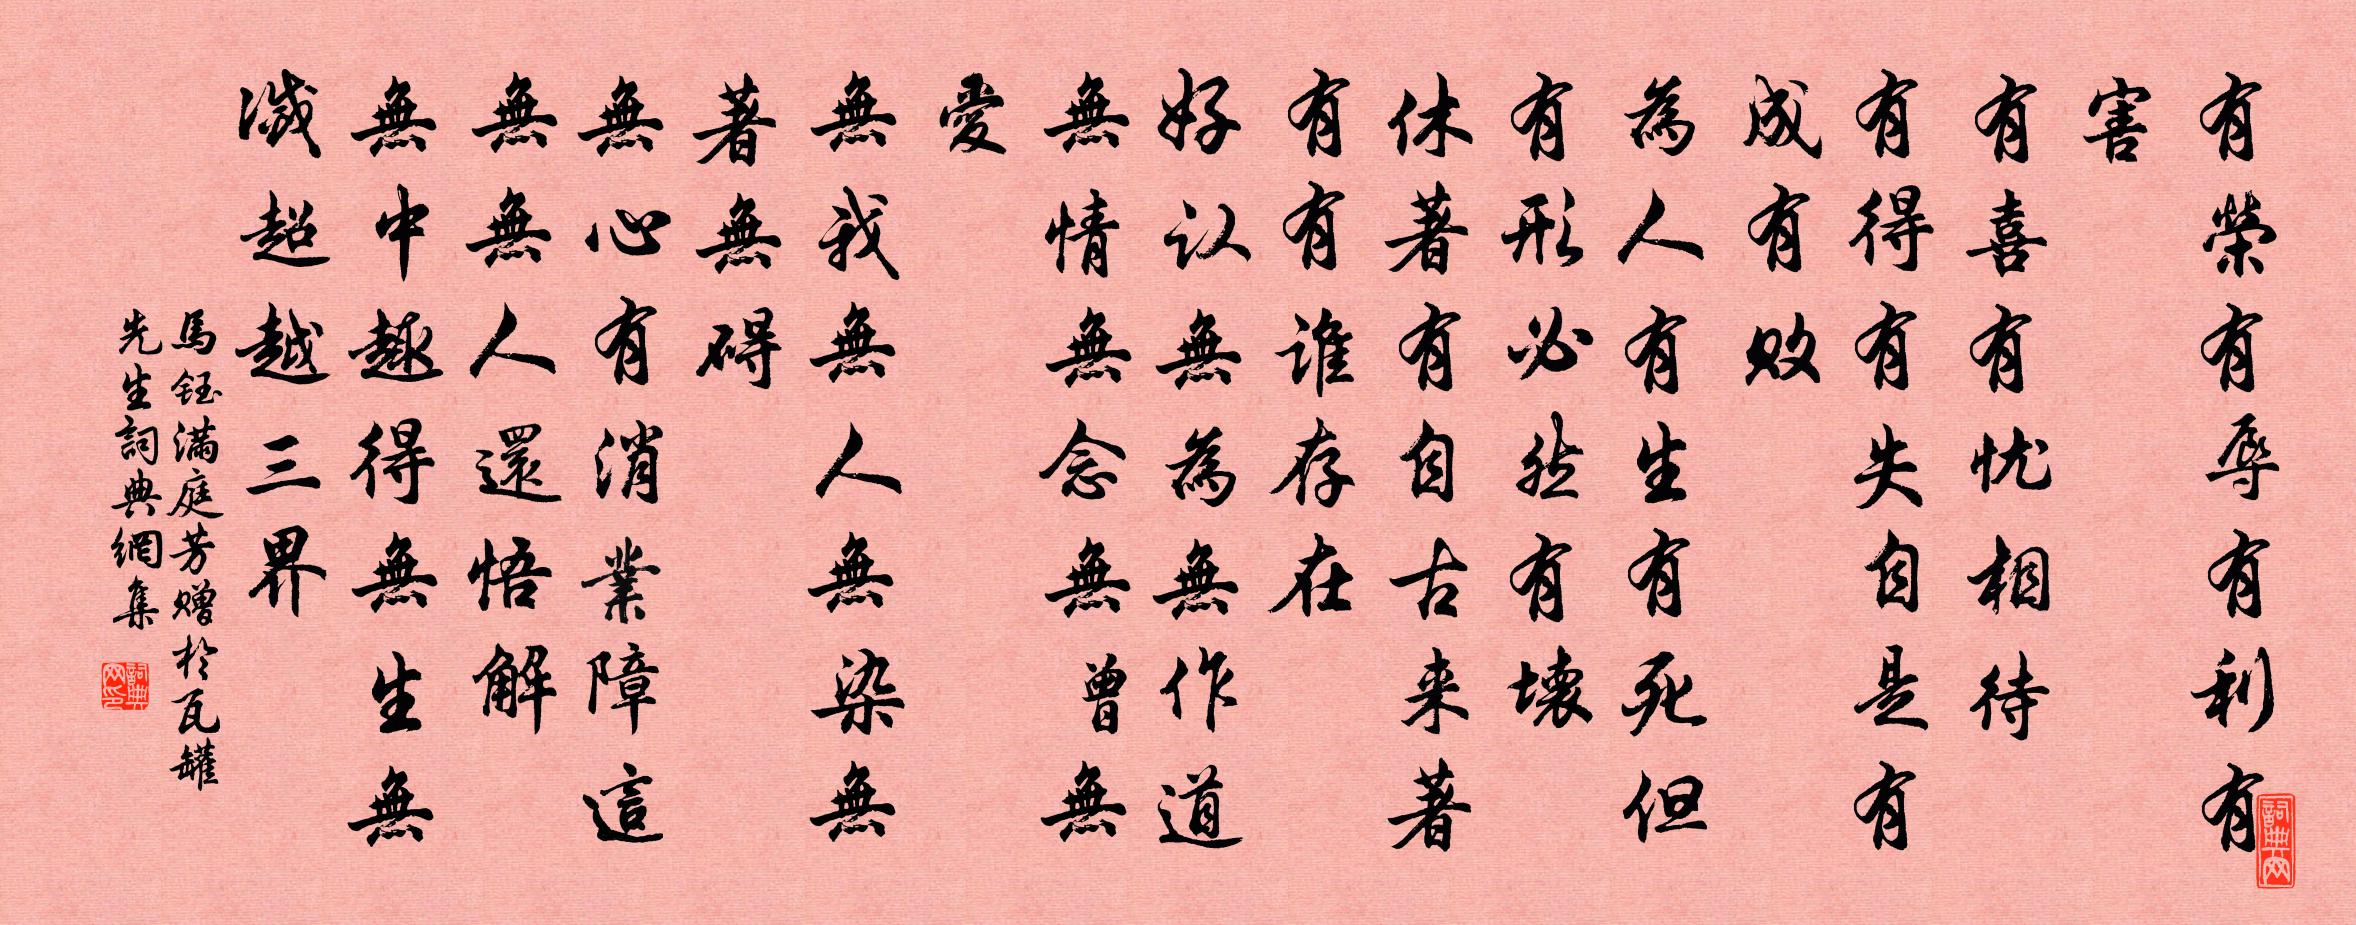 有榮有辱有利有
害
有喜有忧相待
有得有失自是有
成有败
為人有生有死但
有形必然有壞
休著有自古来著
有有谁存在
好认無為無作道
無情無念無曾無
愛
無我無人無染無
著無碍
無心有消業障這
無無人還悟解
無中趣得無生無
滅超越三界
馬钰满庭芳赠於瓦罐
先生詞典網集
詞典网
詞典网印